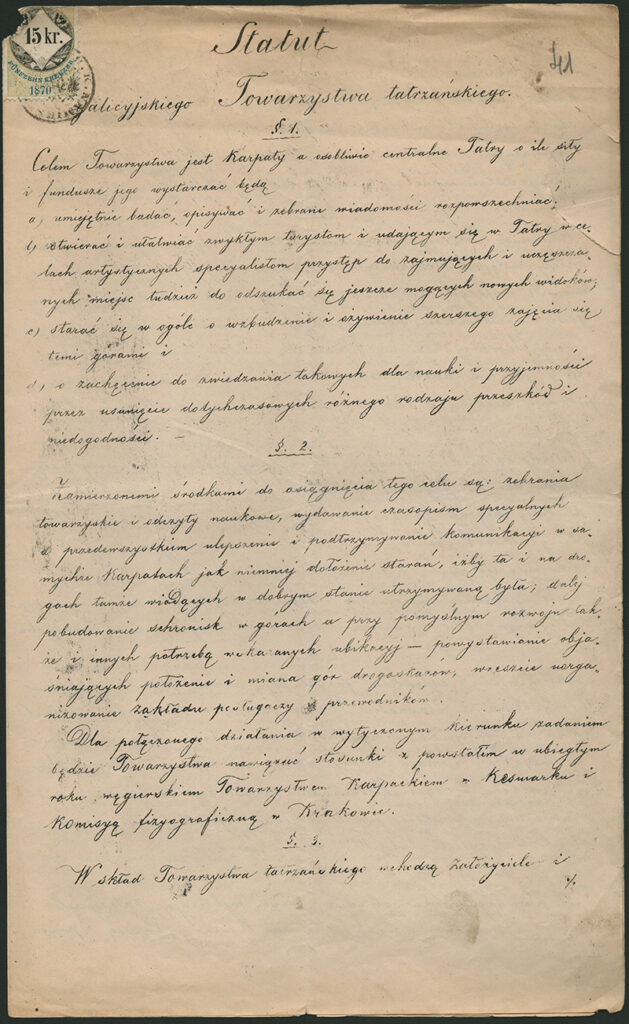 15 kr.
FÜNFZEHN KREUZER
1870
41
Statut
Galicyjskiego Towarzystwa tatrzańskiego.
§. 1.
Celem Towarzystwa jest Karpaty a osobliwie centralne Tatry o ile siły
i fundusze jego wystarczać będą
a, umiejętnie badać, opisywać i zebrane wiadomości rozpowszechniać;
b, otwierać i ułatwiać zwykłym turystom i udającym się w Tatry w ce-
lach artystycznych specyalistom przystęp do zajmujących i uczęszcza-
nych miejsc tudzież do odszukać się jeszcze mogących nowych widoków;
c, starać się w ogóle o wzbudzenie i ożywienie szerszego zajęcia się
temi górami i
d, o zachęcenie do zwiedzania takowych dla nauki i przyjemności
przez usunięcie dotychczasowych różnego rodzaju przeszkód i
niedogodności. –
§. 2.
Zamierzonemi środkami do osiągnięcia tego celu są: zebrania
towarzyskie i odczyty naukowe, wydawanie czasopism specyalnych
a przedewszystkiem ulepszenie i podtrzymywanie komunikacyi w sa-
mychże Karpatach jak niemniej dołożenie starań, iżby ta i na dro-
gach tamże wiodących w dobrym stanie utrzymywaną była; dalej
pobudowanie schronisk w górach a przy pomyślnym rozwoju tak-
że i innych potrzebą wskazanych ubikacyj – powystawianie obja-
śniających położenie i miana gór drogoskazów, wreszcie zorga-
nizowanie zakładu posługaczy i przewodników.
Dla połączonego działania w wytyczonym kierunku zadaniem
będzie Towarzystwa nawiązać stosunki z powstałem w ubiegłym
roku węgierskiem Towarzystwem Karpackiem w Kesmarku i
Komisyą fizyograficzną w Krakowie.
§. 3.
W skład Towarzystwa tatrzańskiego wchodzą założyciele i
./.